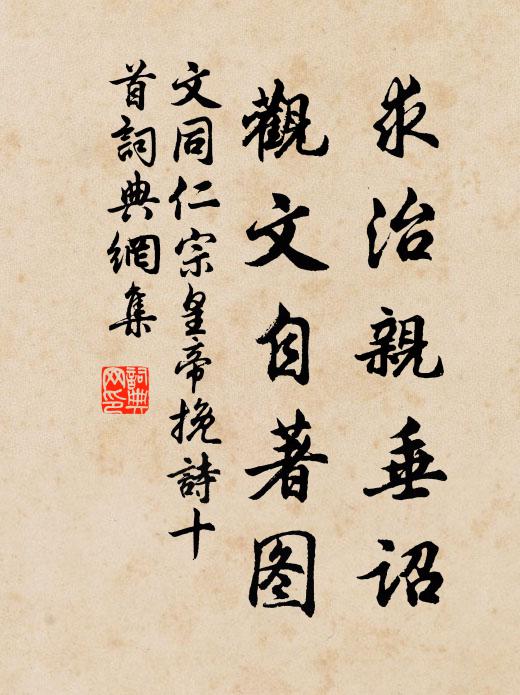 求治親垂詔
觀文自著图
文同仁宗皇帝挽詩十
首詞典網集
詞典
网印